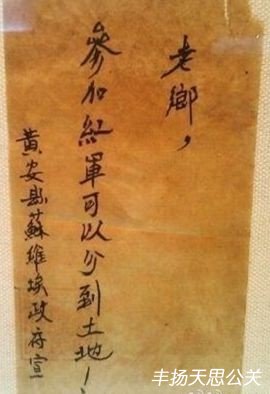 老鄉，
參加紅軍可以分到土地！
黃安縣蘇維埃政府宣
丰扬天思公关